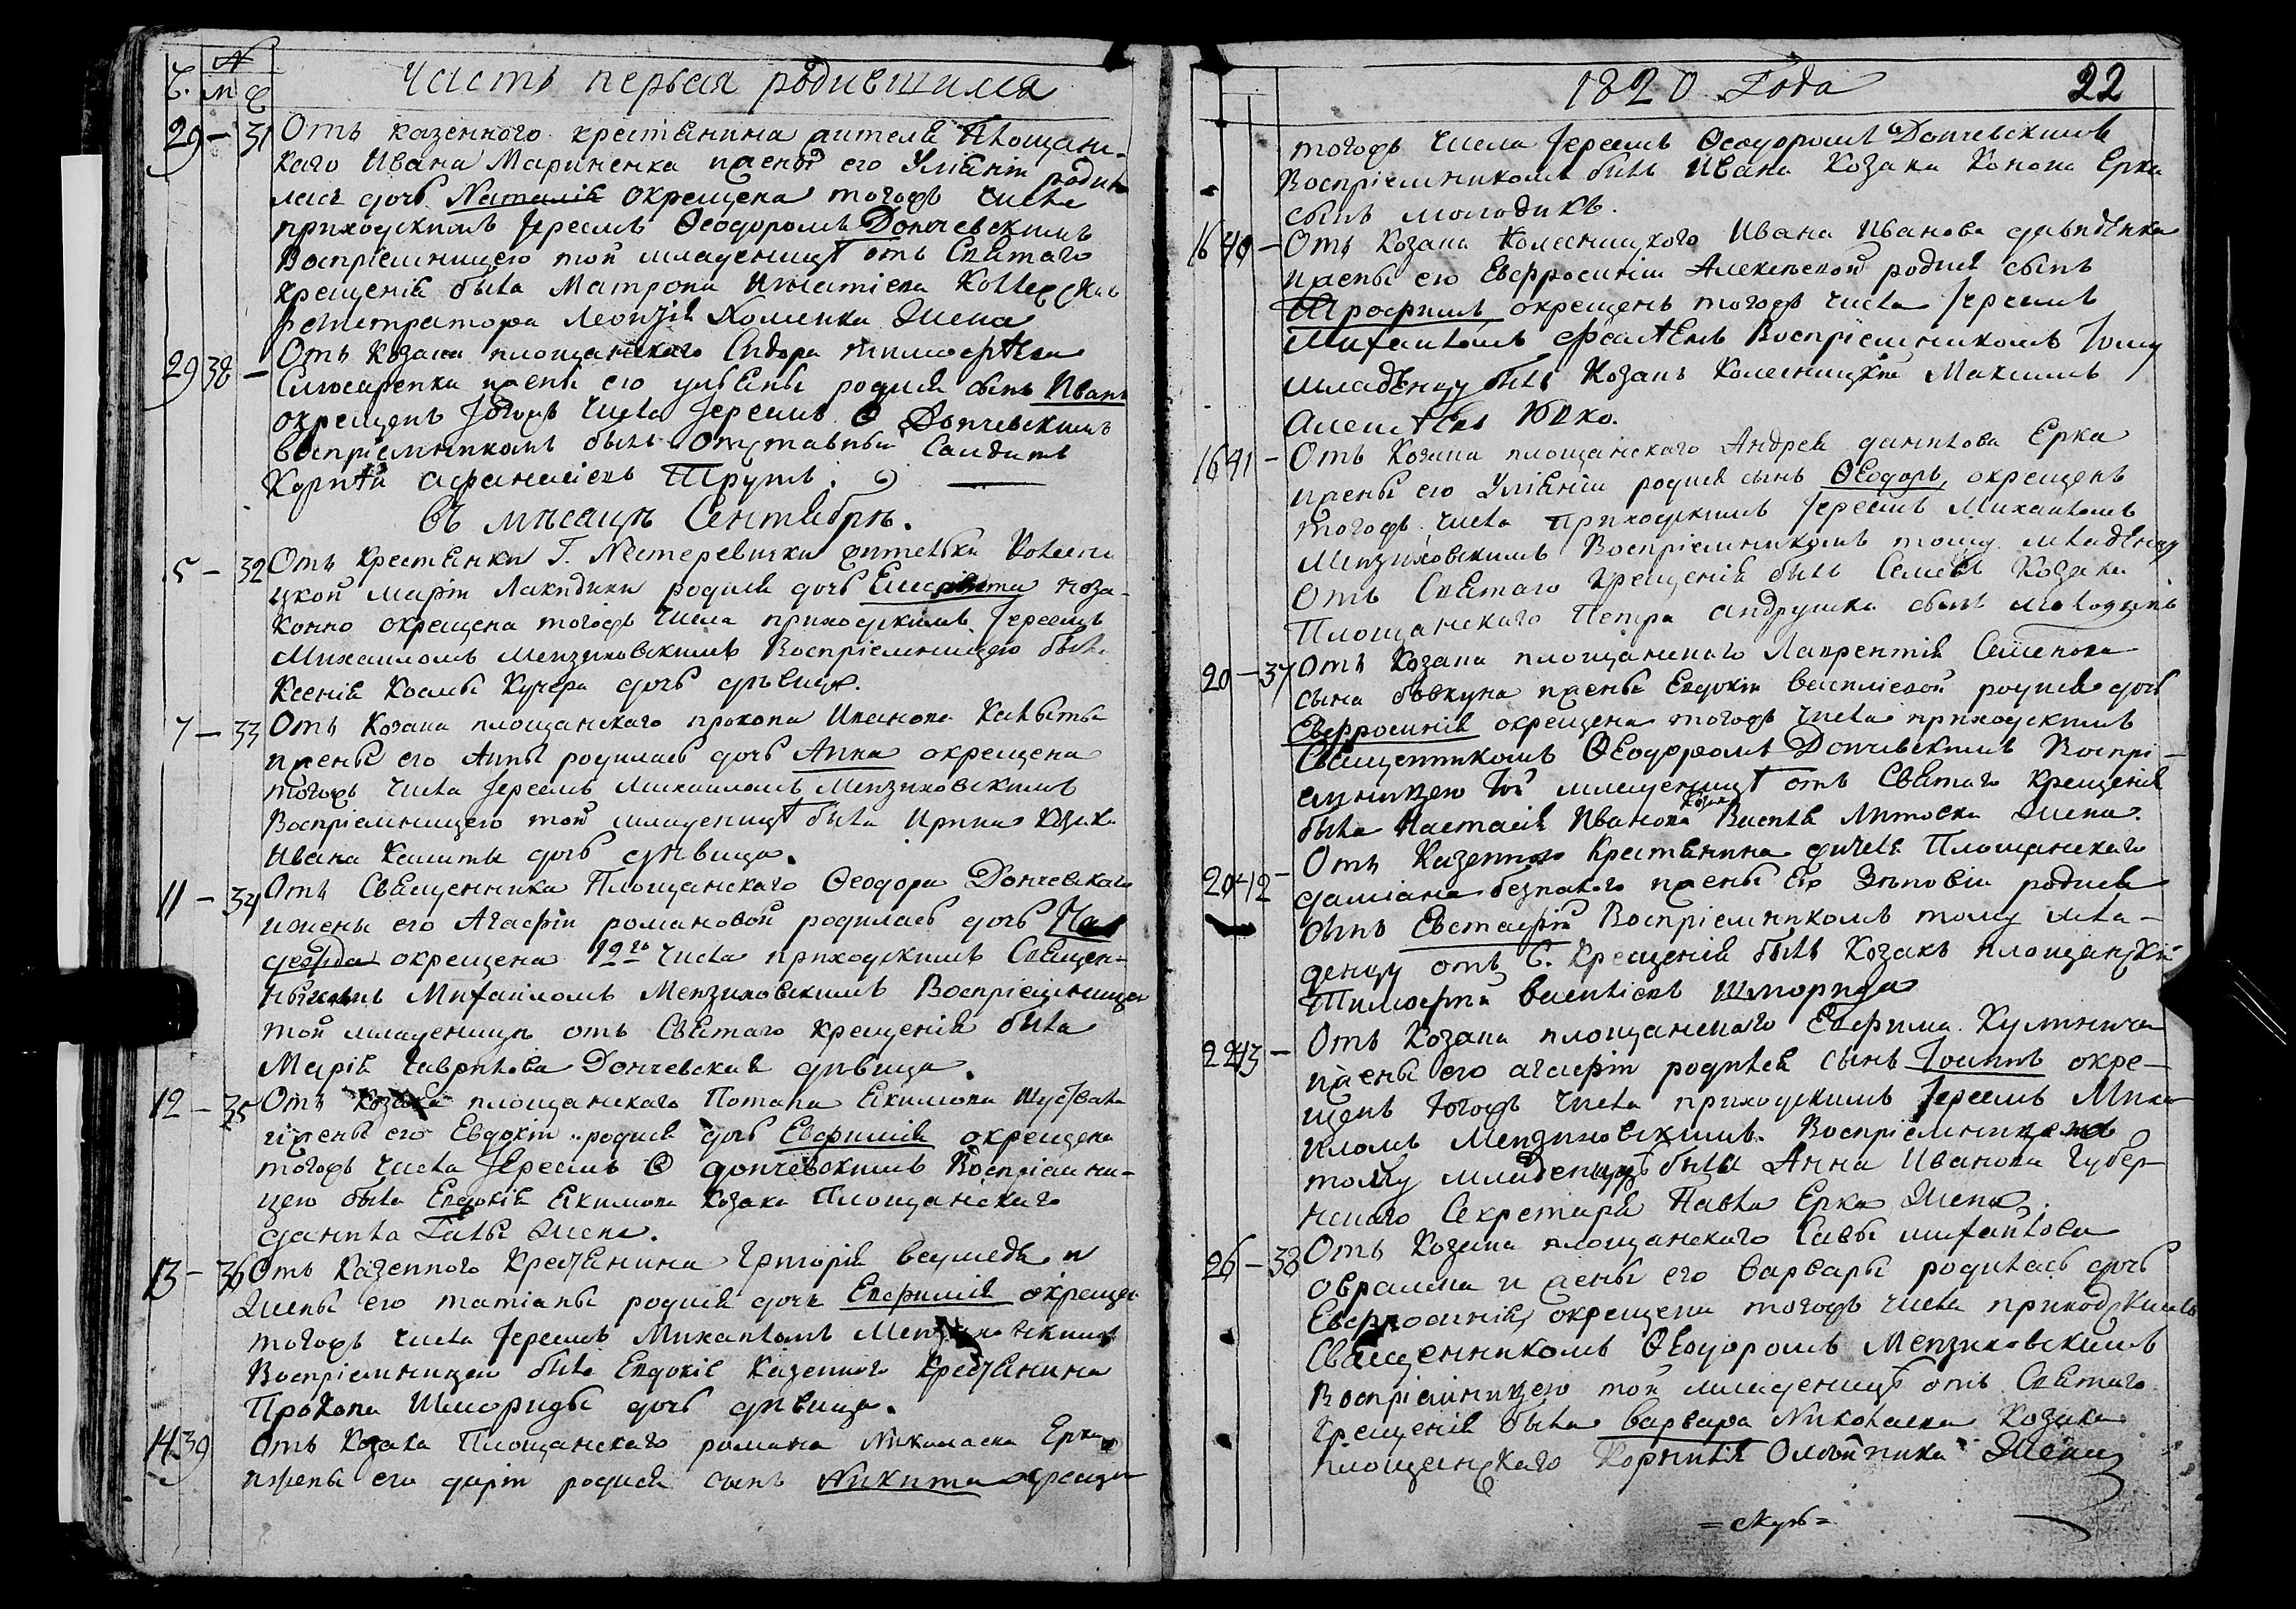 Ч. N
м ж
Часть первая родившимся
29 – 31 Отъ казенного крестянина жителя Площан-
каго Ивана Мариненка ижены его Уліяніи родил
лась дочь Наталія окрещена тогожъ числа
приходскимъ Іереемъ Ѳеодоромъ Дончевскимъ
Воспріемницею той младеницѣ отъ Святаго
крещенія была Матрона Игнатіева Коллежскаго
регистратора Леонтія Хоменка жена
29 38 – Отъ Козака площанского Сидора тимофѣева
Слюсаренка ижены его ульяны родися сынъ Иванъ
окрещенъ тогожъ числа Іереемъ Ѳ Дончевскимъ
воспріемникомъ былъ отставный Салдатъ
Корнѣй афанасіевъ Трушъ.
въ мѣсацѣ Сентябрѣ.
5 – 32 Отъ Крестянки Г. Нестеревички жителки Колесни
цкой Маріи родися дочь Елисавета неза-
конно окрещена тогожъ числа приходскимъ Іереемъ
Михаиломъ Мензиховскимъ Воспріемницею была
Ксенія Космы Кучера дочь дѣвица.
7 – 33 Отъ Козака площанскаго прокопа Иванова Калыты
ижены его Анны родилась дочь Анна окрещена
тогожъ числа Іереемъ Михаиломъ Мензиховскимъ
Воспріемницею той младеницѣ была Ирина Козака
Ивана Калиты дочь дѣвица.
11 – 34 Отъ Священника Площанскаго Ѳеодора Дончевскаго
ижены его Агафіи романовой родилась дочь На
дежда окрещена 12го числа приходскимъ Священ-
никомъ Михаиломъ Мензиховскимъ Воспріемницею
той младеницѣ отъ Святаго крещенія была
Марія Гаврилова Дончевская дѣвица.
12 – 35 Отъ Козака площанскаго Потапа Екимова
ижены его Евдокіи родися дочь Евфимія окрещена
тогожъ числа Іереемъ Ѳ дончевскимъ Воспріемни-
цею была Евдокія Екимова Козака Площанскаго
данила Галы жена.
13 – 36 Отъ Казенного Крестянина Григорія и
жены его татіаны родися дочь Евфимія окрещен
тогожъ числа Іереемъ Михаиломъ Мензиховскимъ
Воспріемницею была Евдокіе Казенного Крестянина
Прокопа Шмориды дочь дѣвица.
14 39 Отъ Козака Площанскаго романа Николаева Ерка
ижены его даріи родися сынъ Никита окрещен
1820 Года 22
тогожъ числа Іереемъ Ѳеодоромъ Дончевскимъ
Воспріемникомъ былъ Ивана Козака Конона Ерка
сынъ молодикъ.
16 40 – Отъ Козака Колесницкого Ивана Иванова давидѣнка
ижены его Евфросиніи Алексѣевой родися сынъ
Трофимъ окрещенъ тогожъ числа Іереемъ
Михаиломъ Воспріемникомъ тому
младѣнцу былъ Козакъ Колесницкій Максимъ
Алексѣевъ Юцко.
16 41 – Отъ Козака площанского Андрея данилова Ерка
ижены его Уліяніи родися сынъ Ѳеодоръ, окрещенъ
тогожъ числа приходскимъ Іереемъ Михаиломъ
Мензиховскимъ Воспріемникомъ тому младѣнцу
Отъ Святаго крещенія былъ Семенъ Козака
Площанскаго Петра андрушка сынъ молодикъ
20 – 37 Отъ Козака площанского Лаврентія Семенова
сына бѣвкуна ижены Евдокіи василіевой родися дочь
Евфросинія окрещена тогожъ числа приходскимъ
Священникомъ Ѳеодоромъ Дончевскимъ Воспрі-
емницею той младеницѣ отъ Святаго крещенія
была Настасія Иванова козака Василя Литовки жена.
20 42 – Отъ Казенного Крестянина жителя Площанскаго
даміана безпалого ижены его Зѣновіи родися
сынъ Евстафій Воспріемникомъ тому мла-
денцу отъ С. Крещенія былъ Козакъ площанскій
Тимофей василіевъ Шморида
22 43 – Отъ Козака площанского Евфима Кулинича
ижены его агафіи родился сынъ Іоаннъ окре-
щенъ тогожъ числа приходскимъ Іереемъ Миха
иломъ Мензиховскимъ. Воспріемницею
тому младенцу была Анна Иванова Губер-
нского Секретаря Павла Ерка жена.
26 – 38 Отъ Козака площанского Савы михайлова
оврамка и жены его варвары родилась дочь
Евфросинія, окрещена тогожъ числа приходскимъ
Священникомъ Ѳеодоромъ Мензиховскимъ
Воспріемницею той младеницѣ отъ Святаго
Крещенія была варвара Николаева Козака
площанскаго Корнилія Олейника жена